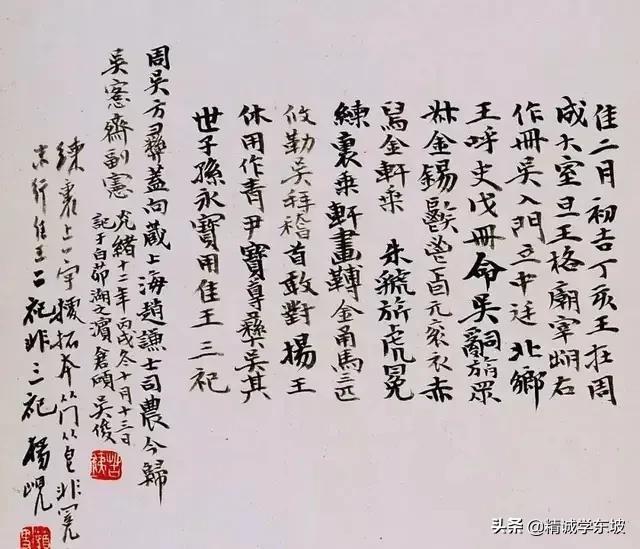 隹二月初吉丁亥王在周
成大室旦王格廟宰朏右
作冊吳入門立中廷北鄉
王呼史戊冊命吳嗣旃眾
叔金錫鬯卣元袞衣赤
舄金軒乘朱虢旂虎冕
練裏乘軒畫轉金甬馬三匹
攸勒吳拜稽首敢對揚王
休用作青尹寶尊彝吳其
世子孫永寶用隹王三祀
周吳方彝蓋向藏上海趙謙士司農今歸
吳愙齋副憲
光緒十二年丙戌冬十月十三日
記于白茆湖之濱倉碩吳俊
練裏上一字據拓本从竹从皇非冕
末行隹王二祀非三祀 楊峴
头条 @精诚学东坡